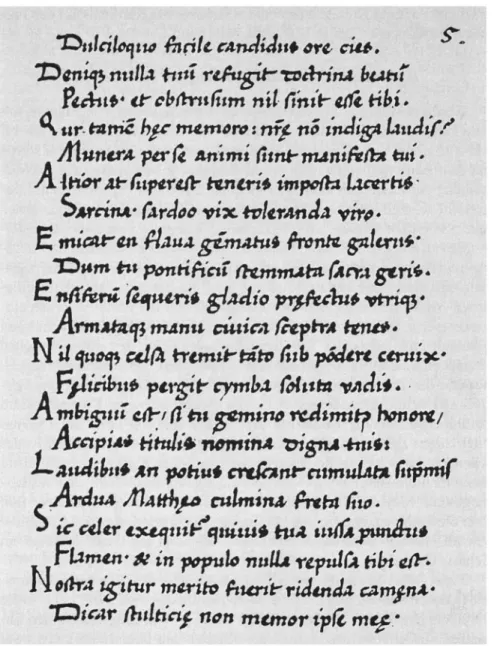 5.
Dulciloquo facile candidus ore cies.
Deniqꝫ nulla tuū refugit doctrina beatū
Pectus· et obstrusum nil sinit esse tibi.
Qur tamē hęc memoro: nr̄ę nō indiga laudis?
Munera per se animi sunt manifesta tui.
Altior at superest teneris imposta lacertis
Sarcina· sardoo vix toleranda viro.
Emicat en flaua gēmatus fronte galerus·
Dum tu pontificū stemmata sacra geris.
Ensiferū sequeris gladio pręfectus vtriqꝫ·
Armataqꝫ manu ciuica sceptra tenes.
Nil quoqꝫ celsa tremit tāto sub pōdere ceruix·
Fęlicibus pergit cymba soluta vadis.
Ambiguū est/ si tu gemino redimitꝰ honore/
Accipias titulis nomina digna tuis:
Laudibus an potius crescant cumulata sup̄mis
Ardua Matthęo culmina freta suo.
Sic celer exequit᷑ quiuis tua iussa punctus
Flamen· & in populo nulla repulsa tibi est.
Nostra igitur merito fuerit ridenda camęna·
Dicar stulticię non memor ipse meę·